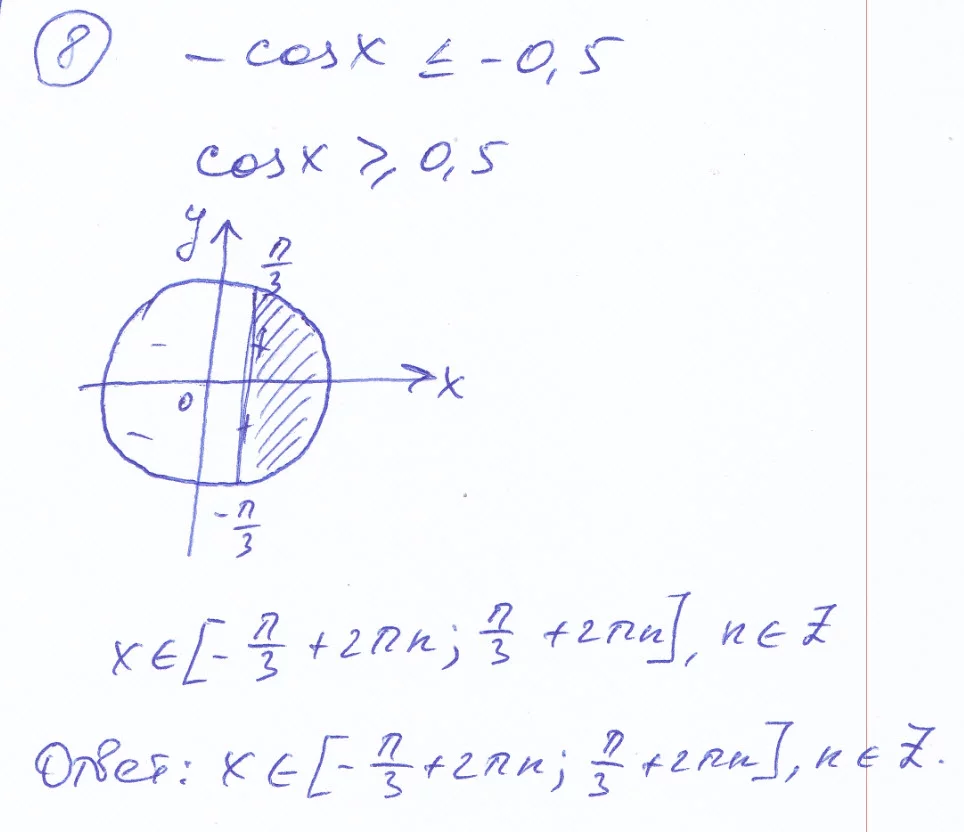 8 - cos x ≤ -0,5
cos x ≥ 0,5
y
π/3
- +
0 x
- +
-π/3
x ∈ [-π/3 + 2πn; π/3 + 2πn], n ∈ Z
Ответ: x ∈ [-π/3 + 2πn; π/3 + 2πn], n ∈ Z.